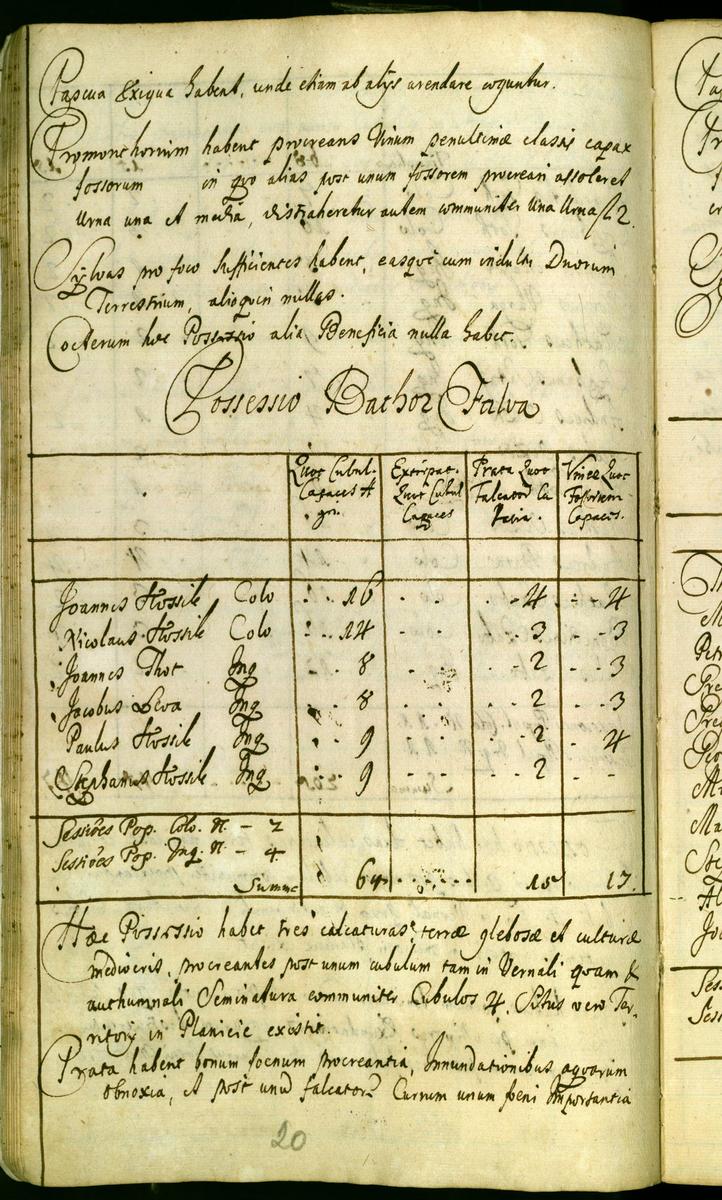 Pascua Exigua habent, unde etiam ab alÿs arendare coguntur.
Promonthorium habent procreans Vinum penultimæ classis capax
fossorum in quo alias post unum fossorem procreari assoleret
Urna una et media, distraheretur autem communiter Una Urna fl 2.
Sÿlvas pro foco sufficientes habent, easque cum indultu Dnorum
Terrestrium, alioquin nullas.
Cœterum hæc Possessio alia Beneficia nulla habet.
Possessio Bachor Falva
Quot Cubul. Capaces Agri.
Extirpat. Quot Cubul Capaces
Prata Quot Falcator Ca
Vinea Quot Fossorum Capaces.
Joannes Hossile Colo 16 - - 4 4
Nicolaus Hossile Colo 14 - - 3 3
Joannes Thot Inq 8 - - 2 3
Jacobus Leva Inq 8 - - 2 3
Paulus Hossile Inq 9 - - 2 4
Stephanus Hossile Inq 9 - - 2 - -
Sessiões Pop. Colo. N. - 2
Sessiões Pop. Inq. N. - 4
Summa 64 15 17.
Hæc Possessio habet tres calcaturas terræ glebosæ et culturæ
mediocris, procreantes post unum cubulum tam in Vernali quam &
authumnali Seminatura communiter Cubulos 4. Situs vero Ter-
ritorÿ in Planicie existit.
Prata habent bonum foenum procreantia, Innundationibus aquarum
obnoxia, et post unũ falcator Currum unum foeni Importantia
20